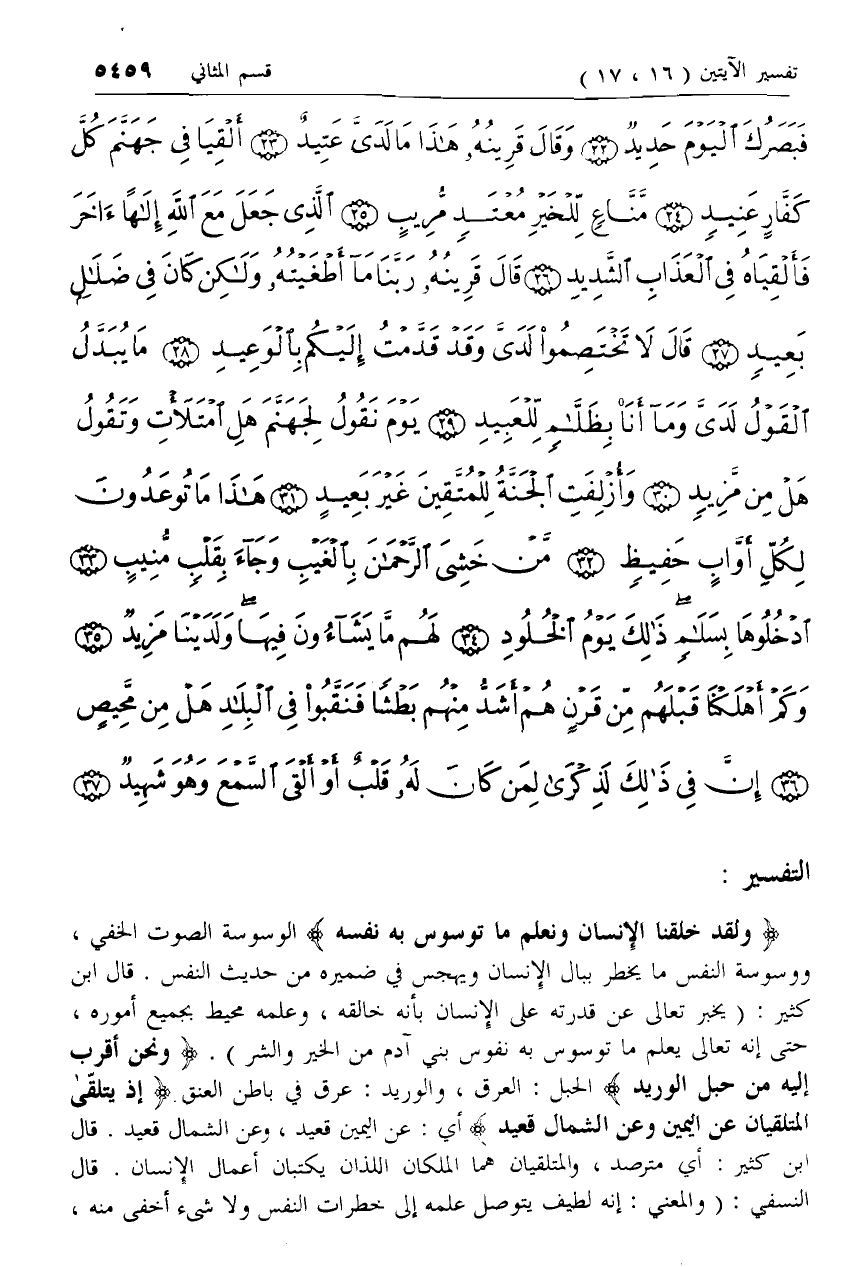 تفسير الآيتين ( ١٦ ، ١٧ ) قسم المثاني ٥٤٥٩
فَبَصَرُكَ ٱلْيَوْمَ حَدِيدٌ ﴿٢٢﴾ وَقَالَ قَرِينُهُۥ هَـٰذَا مَا لَدَىَّ عَتِيدٌ ﴿٢٣﴾ أَلْقِيَا فِى جَهَنَّمَ كُلَّ
كَفَّارٍ عَنِيدٍ ﴿٢٤﴾ مَّنَّاعٍ لِّلْخَيْرِ مُعْتَدٍ مُّرِيبٍ ﴿٢٥﴾ ٱلَّذِى جَعَلَ مَعَ ٱللَّهِ إِلَـٰهًا ءَاخَرَ
فَأَلْقِيَاهُ فِى ٱلْعَذَابِ ٱلشَّدِيدِ ﴿٢٦﴾ قَالَ قَرِينُهُۥ رَبَّنَا مَآ أَطْغَيْتُهُۥ وَلَـٰكِن كَانَ فِى ضَلَـٰلٍ
بَعِيدٍ ﴿٢٧﴾ قَالَ لَا تَخْتَصِمُوا۟ لَدَىَّ وَقَدْ قَدَّمْتُ إِلَيْكُم بِٱلْوَعِيدِ ﴿٢٨﴾ مَا يُبَدَّلُ
ٱلْقَوْلُ لَدَىَّ وَمَآ أَنَا۠ بِظَلَّـٰمٍ لِّلْعَبِيدِ ﴿٢٩﴾ يَوْمَ نَقُولُ لِجَهَنَّمَ هَلِ ٱمْتَلَأْتِ وَتَقُولُ
هَلْ مِن مَّزِيدٍ ﴿٣٠﴾ وَأُزْلِفَتِ ٱلْجَنَّةُ لِلْمُتَّقِينَ غَيْرَ بَعِيدٍ ﴿٣١﴾ هَـٰذَا مَا تُوعَدُونَ
لِكُلِّ أَوَّابٍ حَفِيظٍ ﴿٣٢﴾ مَّنْ خَشِىَ ٱلرَّحْمَـٰنَ بِٱلْغَيْبِ وَجَآءَ بِقَلْبٍ مُّنِيبٍ ﴿٣٣﴾
ٱدْخُلُوهَا بِسَلَـٰمٍ ۖ ذَٰلِكَ يَوْمُ ٱلْخُلُودِ ﴿٣٤﴾ لَهُم مَّا يَشَآءُونَ فِيهَا ۖ وَلَدَيْنَا مَزِيدٌ ﴿٣٥﴾
وَكَمْ أَهْلَكْنَا قَبْلَهُم مِّن قَرْنٍ هُمْ أَشَدُّ مِنْهُم بَطْشًا فَنَقَّبُوا۟ فِى ٱلْبِلَـٰدِ هَلْ مِن مَّحِيصٍ
﴿٣٦﴾ إِنَّ فِى ذَٰلِكَ لَذِكْرَىٰ لِمَن كَانَ لَهُۥ قَلْبٌ أَوْ أَلْقَى ٱلسَّمْعَ وَهُوَ شَهِيدٌ ﴿٣٧﴾
التفسير :
﴿ ولقد خلقنا الإنسان ونعلم ما توسوس به نفسه ﴾ الوسوسة الصوت الخفي ،
ووسوسة النفس ما يخطر ببال الإنسان ويهجس في ضميره من حديث النفس . قال ابن
كثير : ( يخبر تعالى عن قدرته على الإنسان بأنه خالقه ، وعلمه محيط بجميع أموره ،
حتى إنه تعالى يعلم ما توسوس به نفوس بني آدم من الخير والشر ) . ﴿ ونحن أقرب
إليه من حبل الوريد ﴾ الحبل : العرق ، والوريد : عرق في باطن العنق . ﴿ إذ يتلقّىٰ
المتلقيان عن اليمين وعن الشمال قعيد ﴾ أي : عن اليمين قعيد ، وعن الشمال قعيد . قال
ابن كثير : أي مترصد ، والمتلقيان هما الملكان اللذان يكتبان أعمال الإنسان . قال
النسفي : ( والمعني : إنه لطيف يتوصل علمه إلى خطرات النفس ولا شىء أخفى منه ،